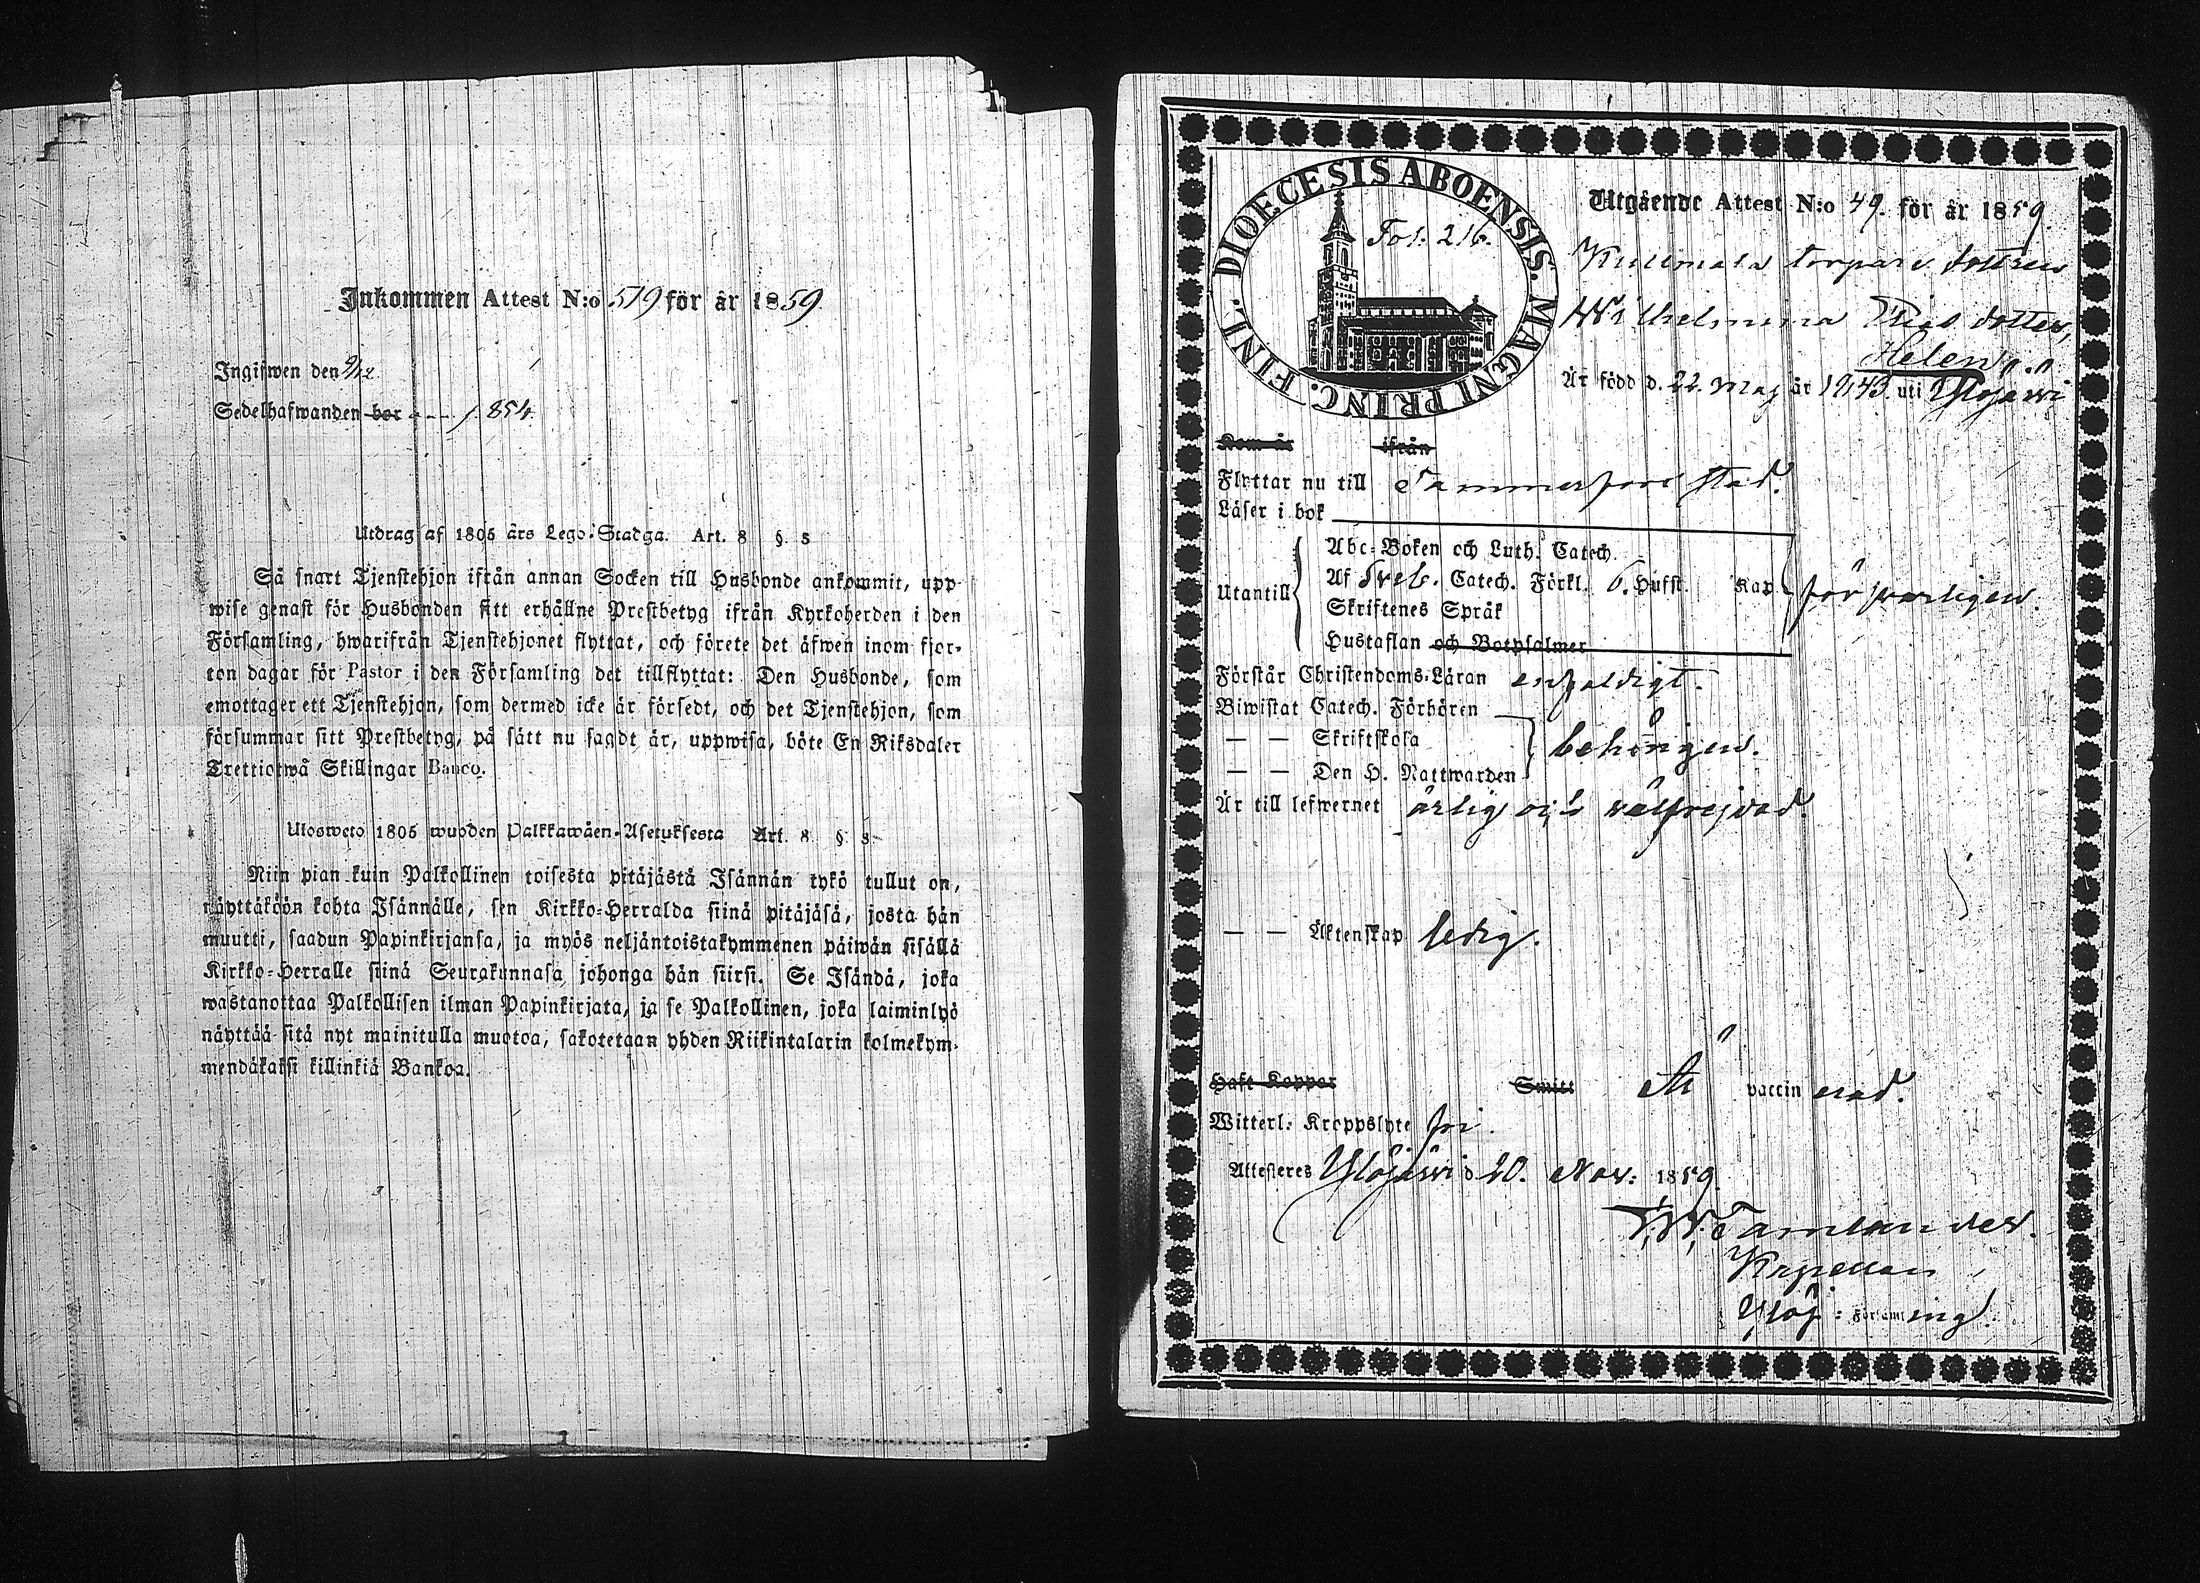 Inkommen Attest N:o 519 för år 1859.
Ingifwen den 9/12
Sedelhafwanden bor - - - 1854
Utdrag af 1805 års Lego-Stadga. Art. 8 §. 8
Så snart Tjenstehjon ifrån annan Socken till Husbonde ankommit, upp-
wise genast för Husbonden sitt erhållne Prestbetyg ifrån Kyrkoherden i den
Församling, hwarifrån Tjenstehjonet flyttat, och förete det äfwen inom fjor-
ton dagar för Pastor i den Församling det tillflyttat: Den Husbonde, som
emottager ett Tjenstehjon, som dermed icke är försedt, och det Tjenstehjon, som
försummar sitt Prestbetyg, på sätt nu sagdt är, uppwisa, böte En Riksdaler
Trettiotwå Skillingar Banco.
Ulosweto 1805 wuoden Palkkawäen-Asetuksesta Art. 8 §. 8
Niin pian kuin Palkollinen toisesta pitäjästä Isännän tykö tullut on,
näyttäköön kohta Isännälle, sen Kirkko-Herralda siinä pitäjäsä, josta hän
muutti, saadun Papinkirjansa, ja myös neljäntoistakymmenen päiwän sisällä
Kirkko-Herralle siinä Seurakunnasa johonga hän siirsi. Se Isändä, joka
wastanottaa Palkollisen ilman Papinkirjata, ja se Palkollinen, joka laiminlyö
näyttää sitä nyt mainitulla muotoa, sakotetaan yhden Riikintalarin kolmekym-
mendäkaksi killinkiä Bankoa.
DIOECESIS ABOENSIS. MAGNI PRINC. FINL.
Fol. 216.
Utgående Attest N:o 49. för år 1859.
torpare dottren
Wilhelmina dotter,
Helen
Är född d. 22. Maj år 1843 uti Ylöjärwi
Kom år ifrån
Flyttar nu till Tammerfors stad.
Läser i bok
Utantill
Abc-Boken och Luth. Catech.
Af Sveb. Catech. Förkl. 6. Hufst. Kap
Skriftenes Språk
Hustaflan och Botpsalmer
försvarligen.
Förstår Christendoms-Läran enfaldigt.
Biwistat Catech. Förhören
— — Skriftskola
— — Den H. Nattwarden
behörigen.
Är till lefwernet ärlig och välfrejdad.
— — Äktenskap ledig.
Haft Koppor Smitt Är vaccin erad.
Witterl. Kroppslyte fri.
Attesteres Ylöjärwi d 20. Nov: 1859.
Tamlander.
Kapellan
Ylöj: Församling